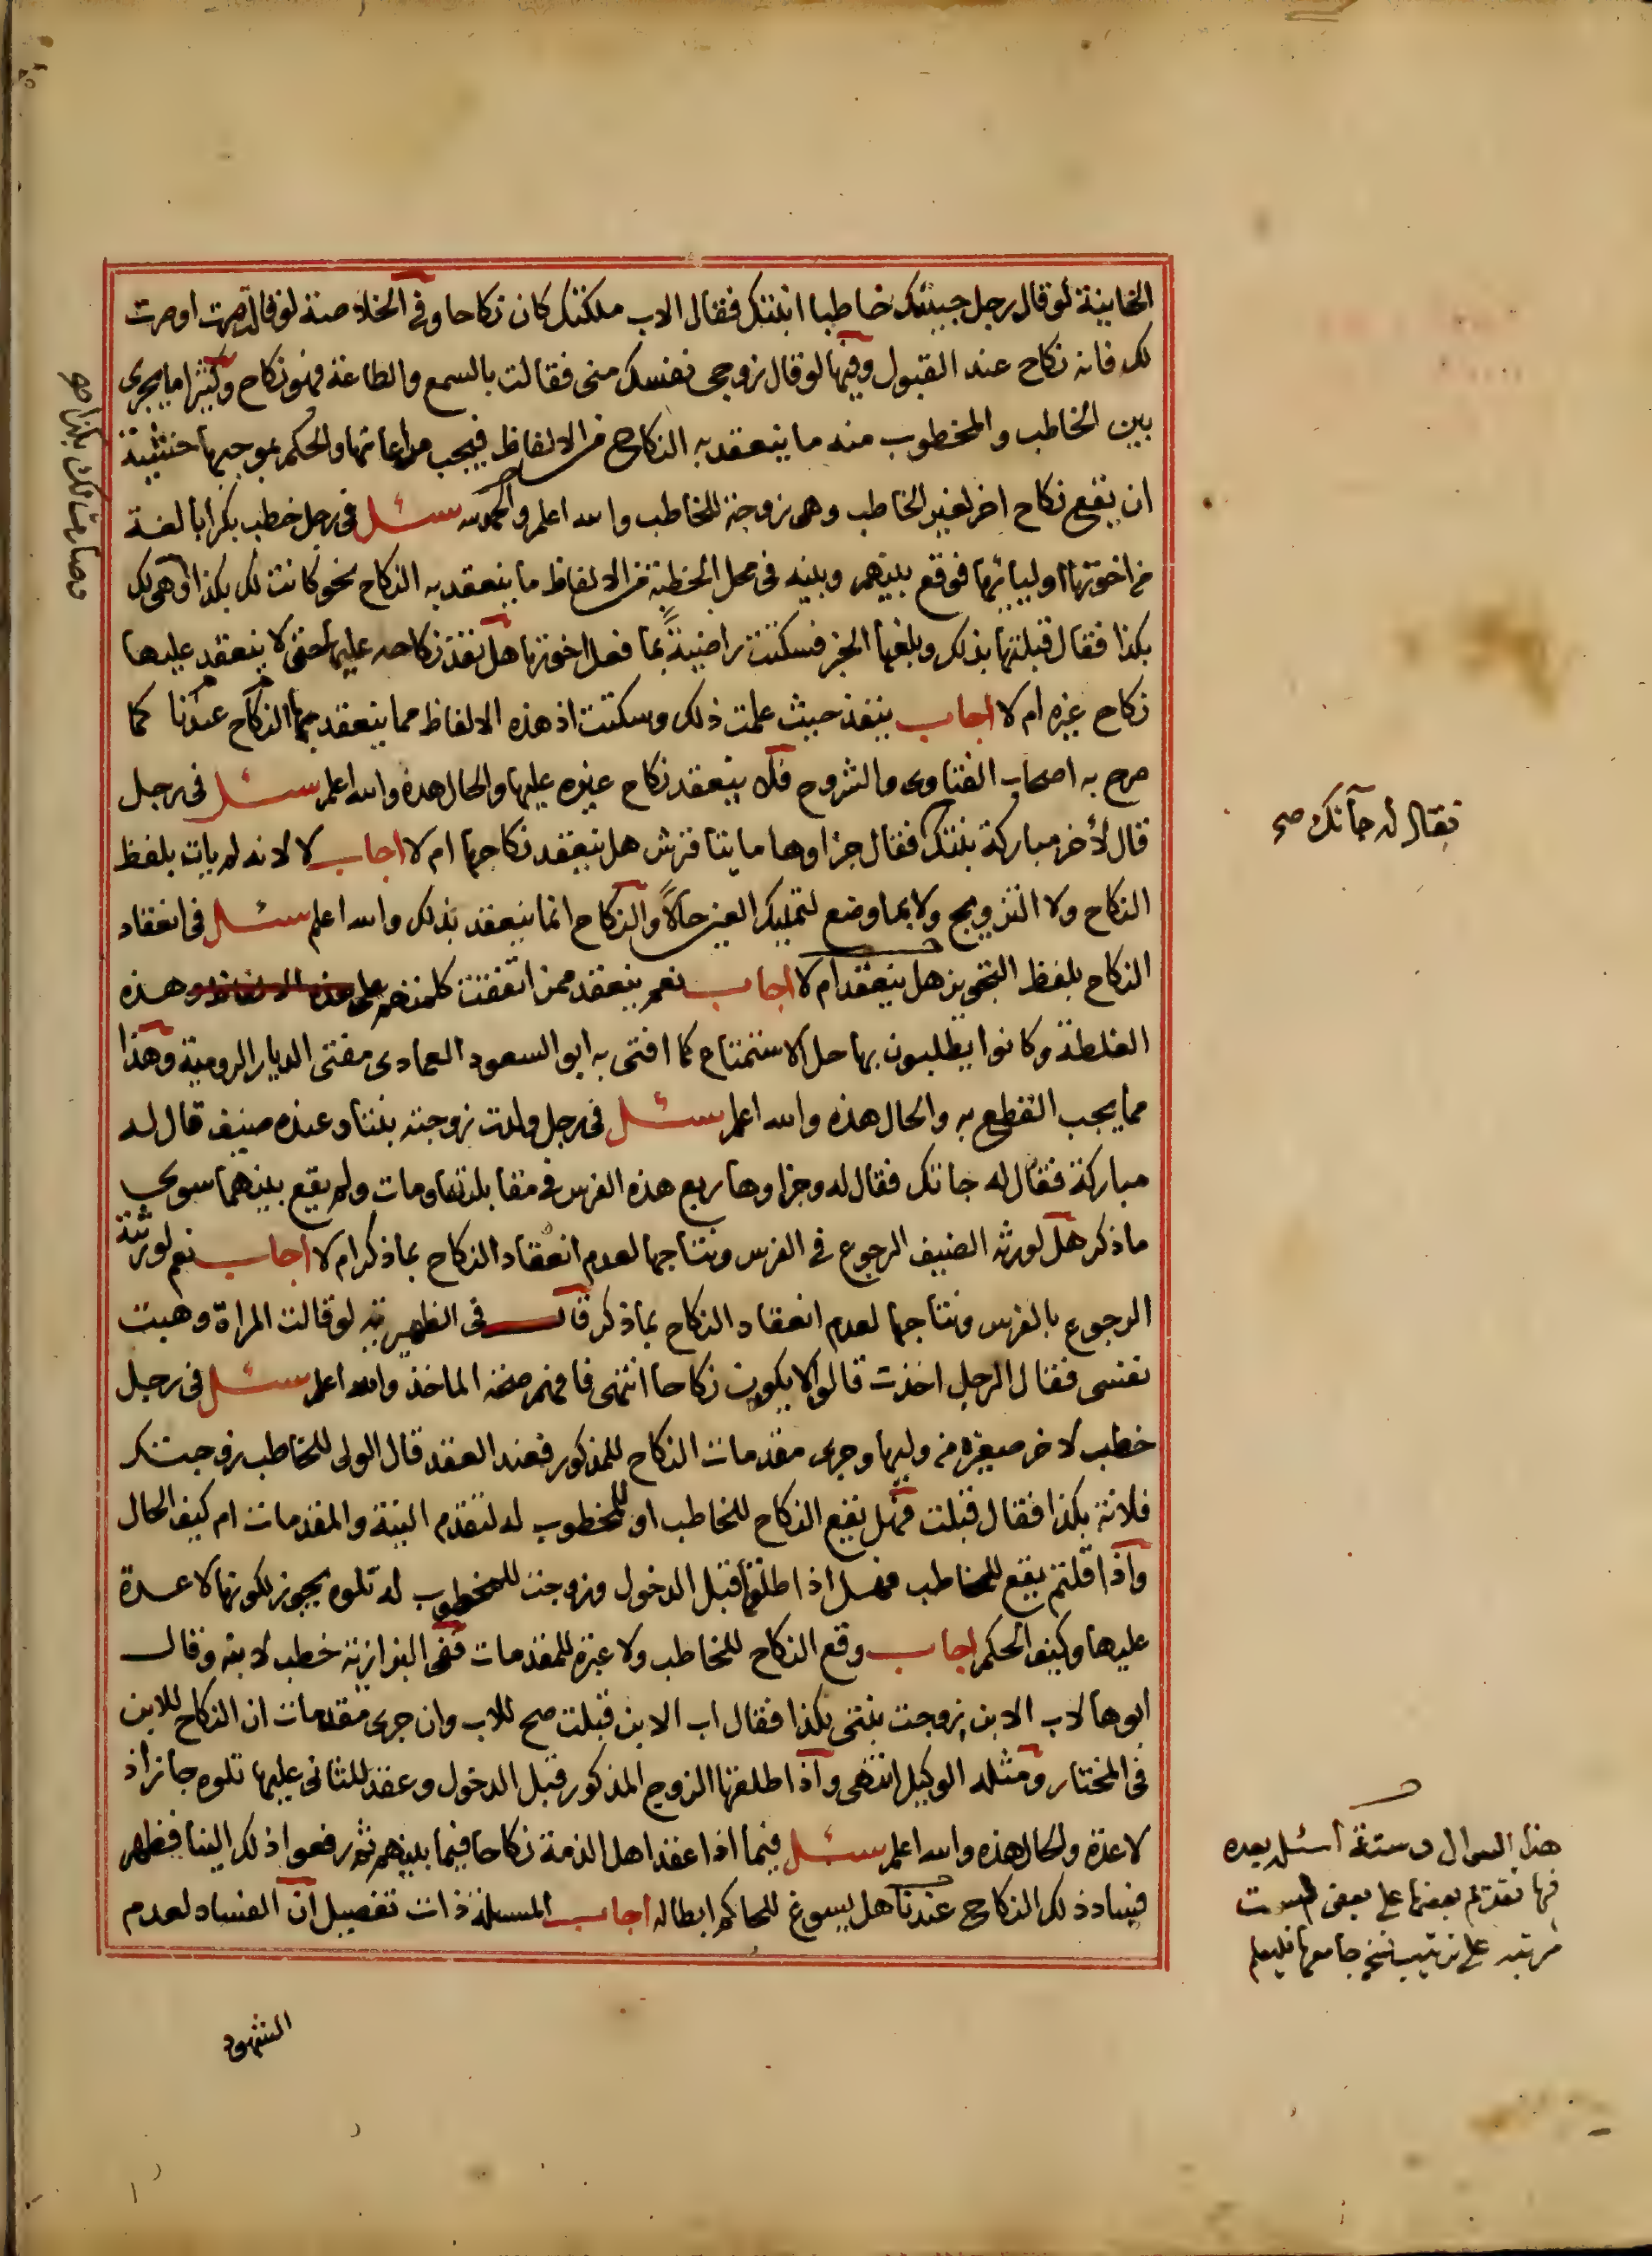 الخانية لو قال رجل جيتك خاطبا ابنتك فقال الاب ملكتك كان نكاحا وفي الخلاصة لو قال صرت او صرت
لك فانه نكاح عند القبول وفيها لو قال زوجي نفسك مني فقالت بالسمع والطاعة فهو نكاح وكثيرا ما يجري
بين الخاطب والمخطوب منه ما ينعقد به النكاح من الالفاظ فيجب مراعاتها والحكم بموجبها خشية
ان يقع نكاح اخر لغير الخاطب وهي زوجة للخاطب والله اعلم والحمد لله سئل في رجل خطب بكرا بالغة
من اخوتها اوليائها فوقع بينهم وبينه في محل الخطبة من الالفاظ ما ينعقد به النكاح نحو كانت لك بكذا او هي لك
بكذا فقال قبلتها بذلك وبلغها الخبر فسكتت راضية بما فعل اخوتها هل نفذ نكاحه عليها حتى لا ينعقد عليها
نكاح غيره ام لا اجاب ينفذ حيث علمت ذلك وسكتت اذ هذه الالفاظ مما ينعقد بها النكاح عندنا كما
صرح به اصحاب الفتاوى والشروح فلا ينعقد نكاح غيره عليها والحال هذه والله اعلم سئل في رجل
قال لأخر مباركة بنتك فقال جزاوها مايتا قرش هل ينعقد نكاحها ام لا اجاب لا لانه لم يات بلفظ
النكاح ولا التزويج ولا بما وضع لتمليك العين حالاً والنكاح انما ينعقد بذلك والله اعلم سئل في انعقاد
النكاح بلفظ التجويز هل ينعقد ام لا اجاب نعم ينعقد ممن اتفقت كلمتهم على هذه الالفاظ هذه
الغلطة وكانوا يطلبون بها حل الاستمتاع كما افتى به ابو السعود العمادي مفتي الديار الرومية وهذا
مما يجب القطع به والحال هذه والله اعلم سئل في رجل ولدت زوجته بنتا وعنده ضيف قال له
مباركة فقال له جاتك فقال له وجزاوها ربع هذه الفرس في مقابلتها ومات ولم يقع بينهما سوى
ما ذكر هل لورثة الضيف الرجوع في الفرس ونتاجها لعدم انعقاد النكاح بما ذكر ام لا اجاب نعم لورثته
الرجوع بالفرس ونتاجها لعدم انعقاد النكاح بما ذكر قال في الظهيرية لو قالت المراة وهبت
نفسي فقال الرجل اخذت قالوا لا يكون نكاحا انتهى فافهم صحة الماخذ والله اعلم سئل في رجل
خطب لاخر صغيرة من وليها وجرى مقدمات النكاح للمذكور فعند العقد قال الولي للخاطب زوجتك
فلانة بكذا فقال قبلت فهل يقع النكاح للخاطب او للمخطوب له لتقدم النية والمقدمات ام كيف الحال
واذا قلتم يقع للخاطب فهل اذا طلقها قبل الدخول وزوجت للمخطوب له تلوه يجوز لكونها لا عدة
عليها وكيف الحكم اجاب وقع النكاح للخاطب ولا عبرة للمقدمات ففي البزازية خطب لابنه وقال
ابوها لاب الابن زوجت بنتي بكذا فقال اب الابن قبلت صح للاب وان جرى مقدمات ان النكاح للابن
في المختار ومثله الوكيل انتهى واذا طلقها الزوج المذكور قبل الدخول وعقد للثاني عليها تلوه جاز اذ
لا عدة والحال هذه والله اعلم سئل فيما اذا عقد اهل الذمة نكاحا فيما بينهم ثم رفعوا ذلك الينا فيظهر
فساد ذلك النكاح عندنا هل يسوغ للحاكم ابطاله اجاب المسئلة ذات تفصيل ان الفساد لعدم
الشهود
فقال له جآتك صح
هذا السوال وستة اسئلة بعده
فيها تقديم بعضها على بعض ليست
مرتبة على ترتيب نسخ جامعها فليعلم